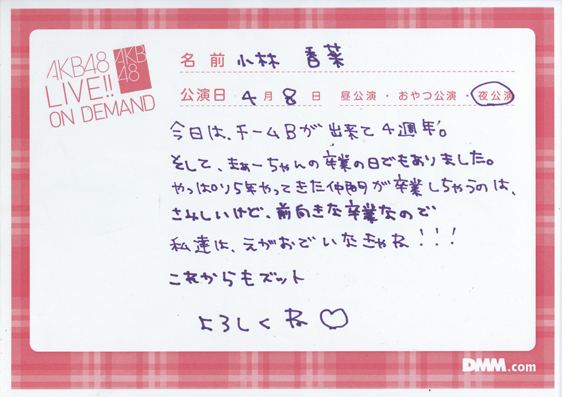 AKB48
LIVE!!
ON DEMAND
AKB
48
名前 小林 香菜
公演日 4月 8日 昼公演・おやつ公演・夜公演
今日は、チームBが出来て4週年。
そして、まぁーちゃんの卒業の日でもありました。
やっぱり5年やってきた仲間が卒業しちゃうのは、
さみしいけど、前向きな卒業なので
私達は、えがおでいなきゃね!!!
これからもズット
よろしくね♡
DMM.com